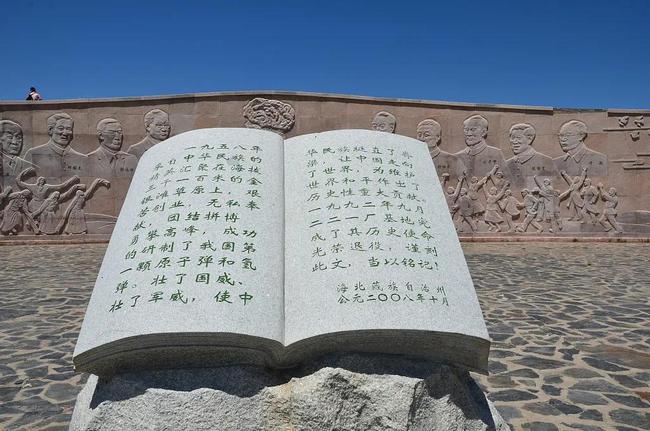 一九五八年
来自中华民族的
精英荟萃在海拔
三千一百米的金
银滩草原上，艰
苦创业、无私奉
献、团结拼搏
勇攀高峰，成功
的研制了我国第
一颗原子弹和氢
弹。壮了国威、
壮了军威，使中
华民族挺直了脊
梁，让中国走向
了世界，为维护
世界和平作出了
历史性重大贡献。
一九九二年九月
二二一厂基地完
成了其历史使命
光荣退役，谨刻
此文，当以铭记！
海北藏族自治州
公元二〇〇八年十月